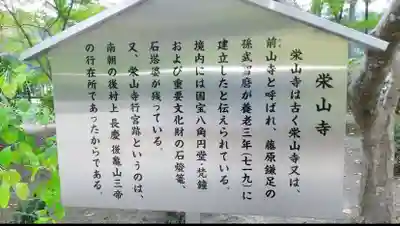 栄山寺
栄山寺は古く栄山寺又は、
前山寺と呼ばれ、藤原鎌足の
孫武智麿が養老三年(七一九)に
建立したと伝えられている。
境内には国宝八角円堂・梵鐘
および重要文化財の石燈篭、
石塔婆が残っている。
又、栄山寺行宮跡というのは、
南朝の後村上、長慶、後亀山三帝
の行在所であったからである。